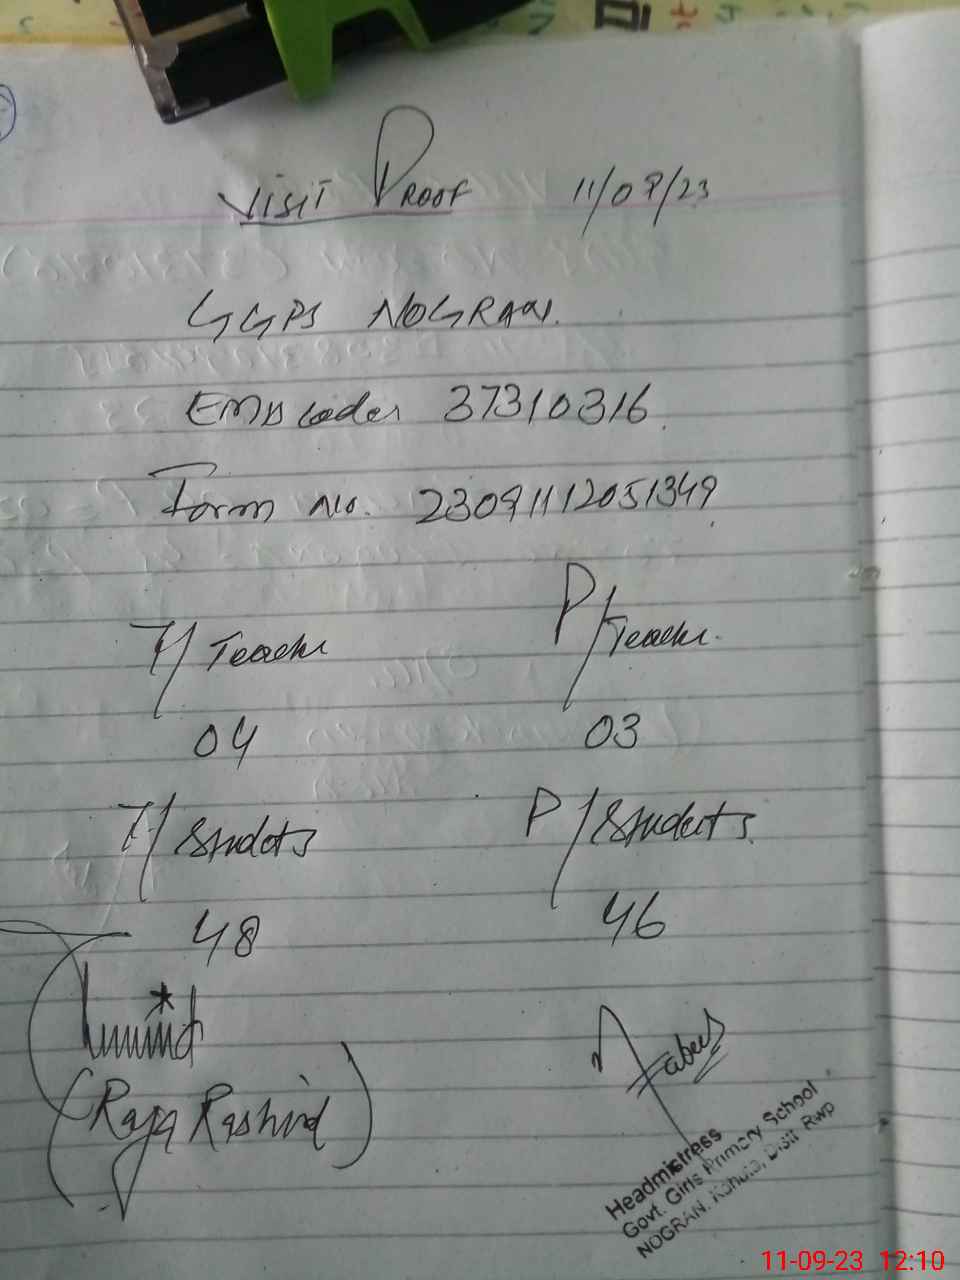 VISIT PROOF 11/09/23
GGPS NOGRAN.
EMIS Code 37310316
Form No. 23091112051349
T/ Teacher P/ Teacher.
04 03
T/ Studets P/ Students.
48 46
(Raja Rashid)
Headmistress
Govt. Girls Primary School
NOGRAN. Kahuta, Distt Rwp
11-09-23 12:10